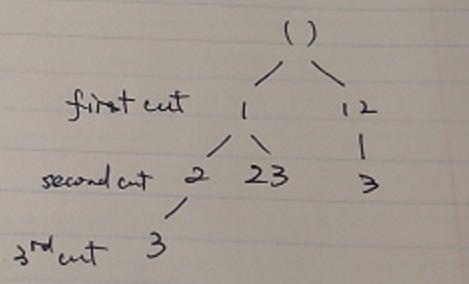 ( )
first cut 1 12
second cut 2 23 3
3rd cut 3